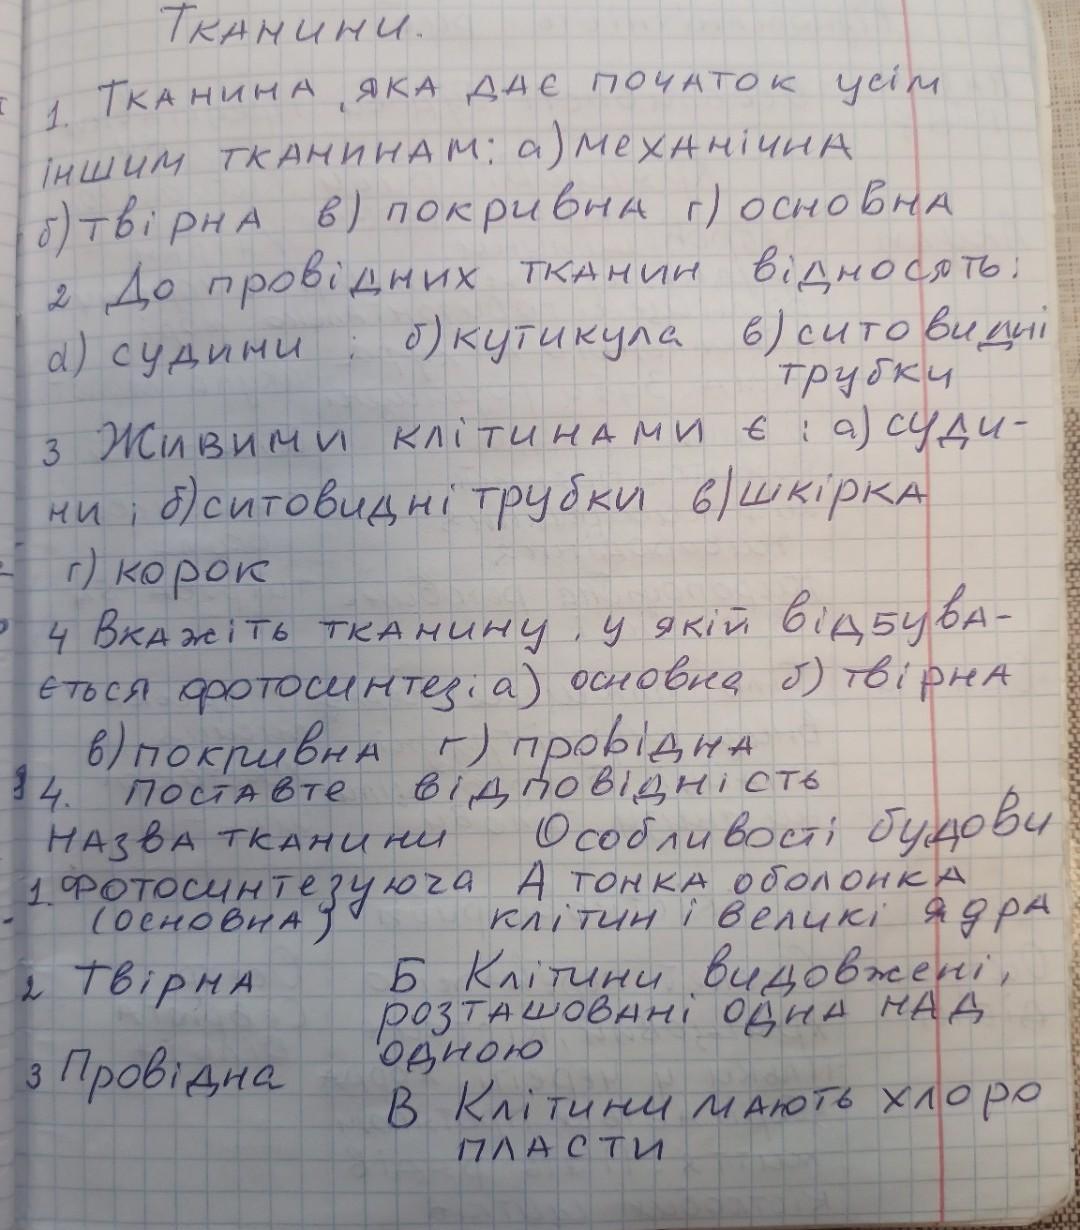 Тканини.
1. Тканина, яка дає початок усім
іншим тканинам: а) механічна
б) твірна в) покривна г) основна
2 До провідних тканин відносять:
а) судини ; б) кутикула в) ситовидні
трубки
3 Живими клітинами є : а) суди-
ни ; б) ситовидні трубки в) шкірка
г) корок
4 Вкажіть тканину, у якій відбува-
ється фотосинтез: а) основна б) твірна
в) покривна г) провідна
4. Поставте відповідність
Назва тканини Особливості будови
1. Фотосинтезуюча А тонка оболонка
(основна) клітин і великі ядра
2 Твірна Б Клітини видовжені,
розташовані одна над
одною
3 Провідна
В Клітини мають хлоро
пласти